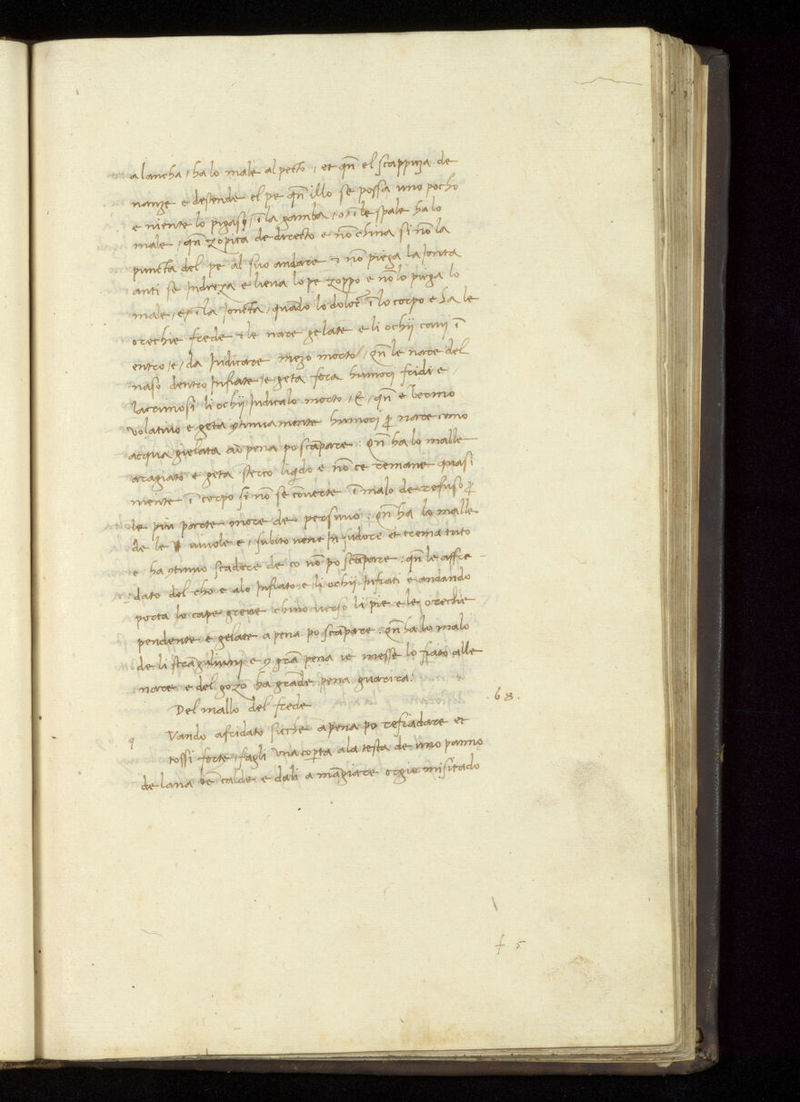 a lancha / ha lo male al pecto / et qn̄ el scappuza de
nanze e destende el pe qn̄ illo se possa uno pocho
e niente lo pigasi / ī la gamba / o / ī le spale ha lo
male / qn̄ zopica de directo e nō china si nō la
puncta del pe al suo andare & nō piega la Ionta
anti se Indreza e lieua lo pe zoppo e nō lo piega lo
male / e / ī la Ioncta / quādo lo dolor ī lo corpo e ha le
orechie frede & le nare gelate e li ochii caui ī
entro / e / da Iudicare mezo morto / qn̄ le nare del
naso dentro Infiate / e geta fora humori fridi e /
lacrimosi li ochii Iudicalo morto / & / qn̄ e
uolatiuo e geta 9tinuamente humori ꝑ nare como
acqua gielata ad pena po scāpare : Qn̄ ha lo malle
aragiato e geta sterco liquido e nō ce remane quasi
niente ī corpo si nō se cōuerte ī malo de refuso ꝑ
le piu parte more de : Qn̄ ha lo malle
de le uiuole e / subito uene In sudore et trema tuto
e / ha 9tinuo de co nō po scāpare : qn̄ le affre
dato del cho e a lo Infiato e li ochii Infiati e andando
porta lo capo greue chino uerso li pie e le orechie
pendente e gelate a pena po scāpare : Qn̄ ha lo malo
de li strāguliuni e 9 grā pena ie messe lo fiato alle
nare e del gozo ha grāde pena guarira.
Del mallo del frede .68.
q Vando afridato siche apena po refiadare et
tossi forte / fagli una coperta a la testa de uno panno
de lana bē calde e dali a māgiare orgio misticado
f 5